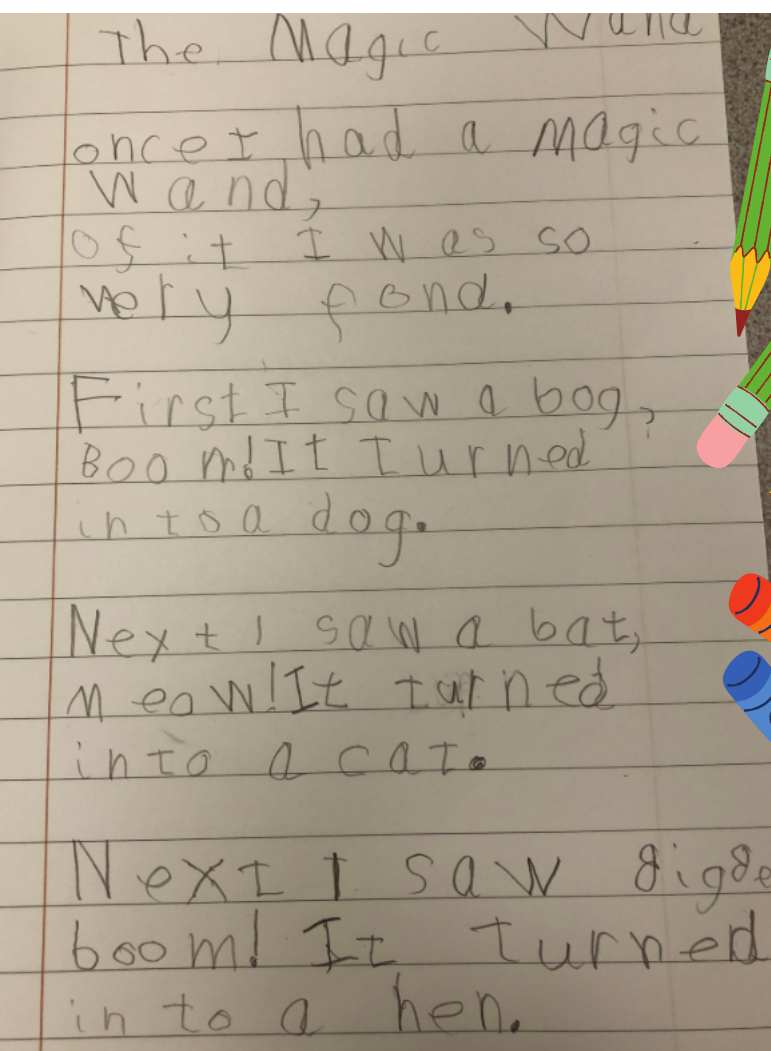 The Magic Wand
once I had a magic
Wand,
of it I was so
very fond.
First I saw a bog,
Boom! It turned
into a dog.
Next I saw a bat,
Meow! It turned
into a cat.
Next I saw
boom! It turned
in to a hen.